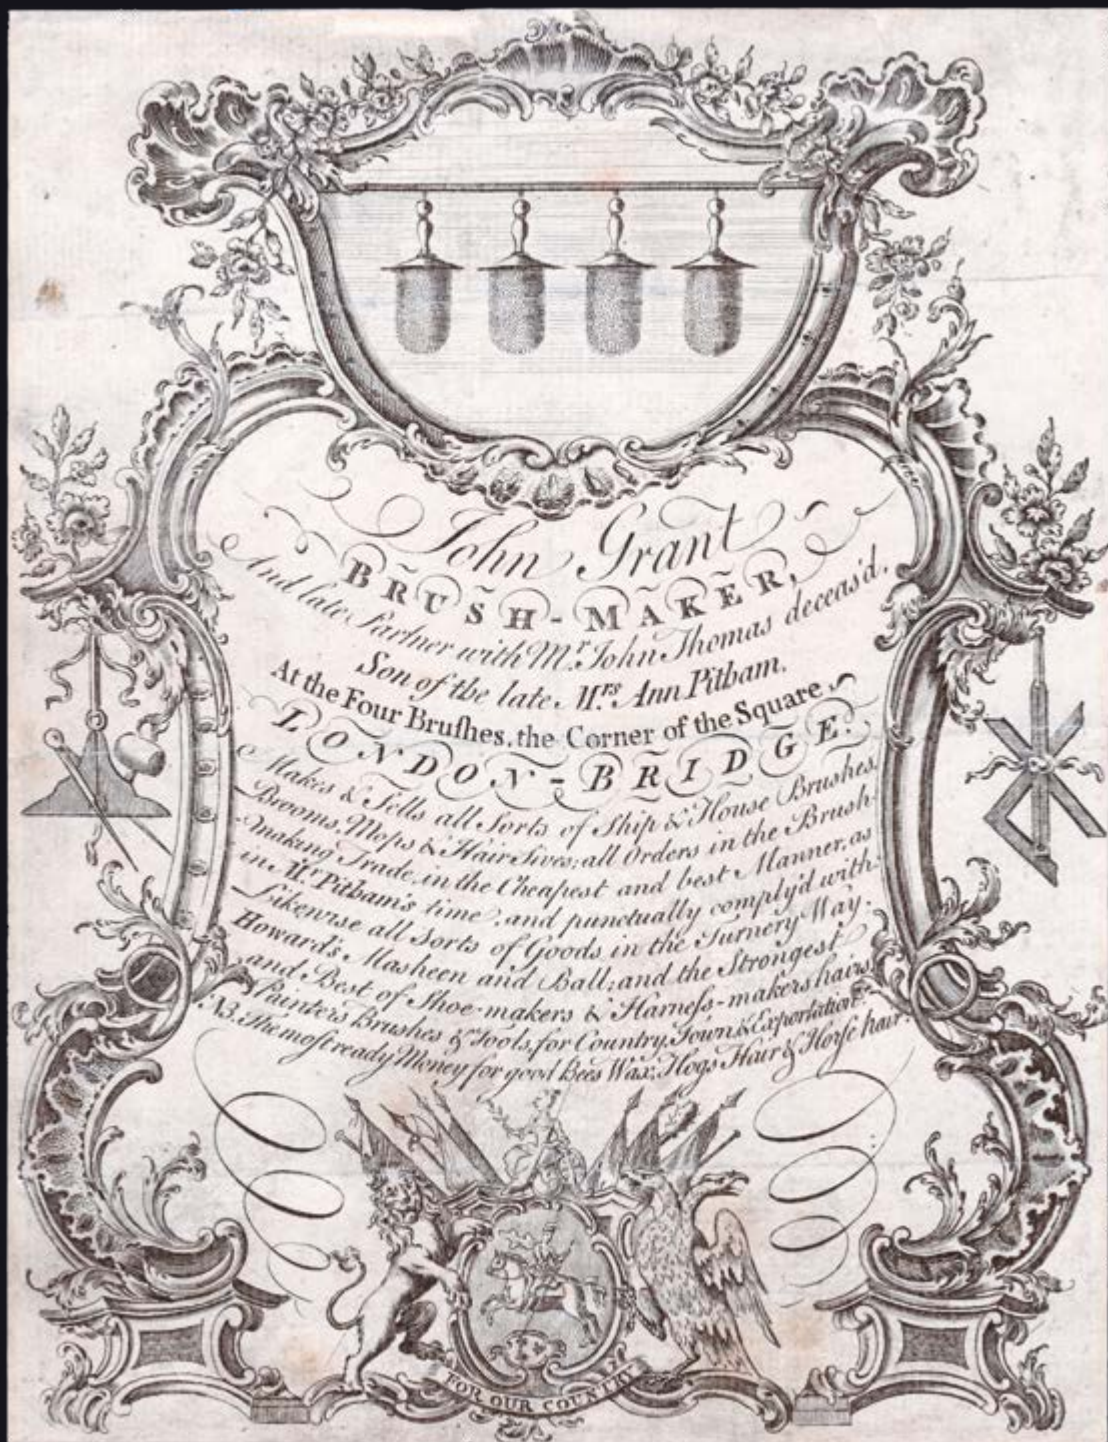 John Grant
BRUSH-MAKER,
And late Partner with Mr. John Thomas deceas'd,
Son of the late Mrs. Ann Pitham,
At the Four Bruſhes, the Corner of the Square,
LONDON-BRIDGE.
Makes & Sells all Sorts of Ship & House Brushes,
Brooms, Mops & Hair Sives; all Orders in the Brush-
making Trade, in the Cheapest and best Manner, as
in Mrs Pitham's time; and punctually comply'd with:
Likewise all Sorts of Goods in the Turnery Way:
Howard's Masheen and Ball; and the Strongest
and Best of Shoe-makers & Harneſs-makers hairs,
Painters Brushes & Tools, for Country, Town & Exportation.
NB. The moſt ready Money for good Bees Wax, Hogs Hair & Horſe hair.
FOR OUR COUNTRY